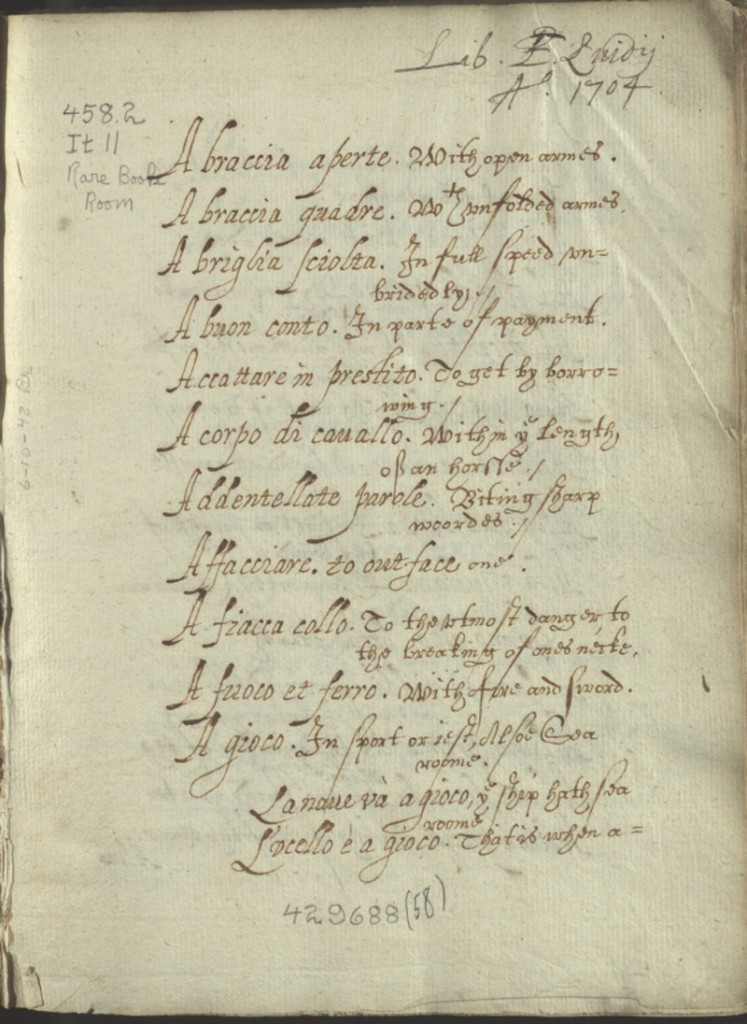 Lib. E. Quidij
A°. 1704
458.2
It 11
Rare Book
Room
A braccia aperte. With open armes.
A braccia quadre. Wth vnfolded armes.
A briglia sciolta. In full speed vn=
bridedly./
A buon conto. In parte of payment.
Accattare in prestito. To get by borro=
wing./
A corpo di cauallo. Within ye length
of an horsse./
Addentellate parole. Biting sharp
woordes./
Affacciare. to outface one.
A fiacca collo. To the vtmost danger to
the breaking of ones necke.
A fuoco et ferro. With fire and sword.
A gioco. In sport or iest, Alsoe Sea
roome.
La naue và a gioco, ye ship hath sea
roome
L'vcello è a gioco. That is when a=
6-10-42
429688(58)